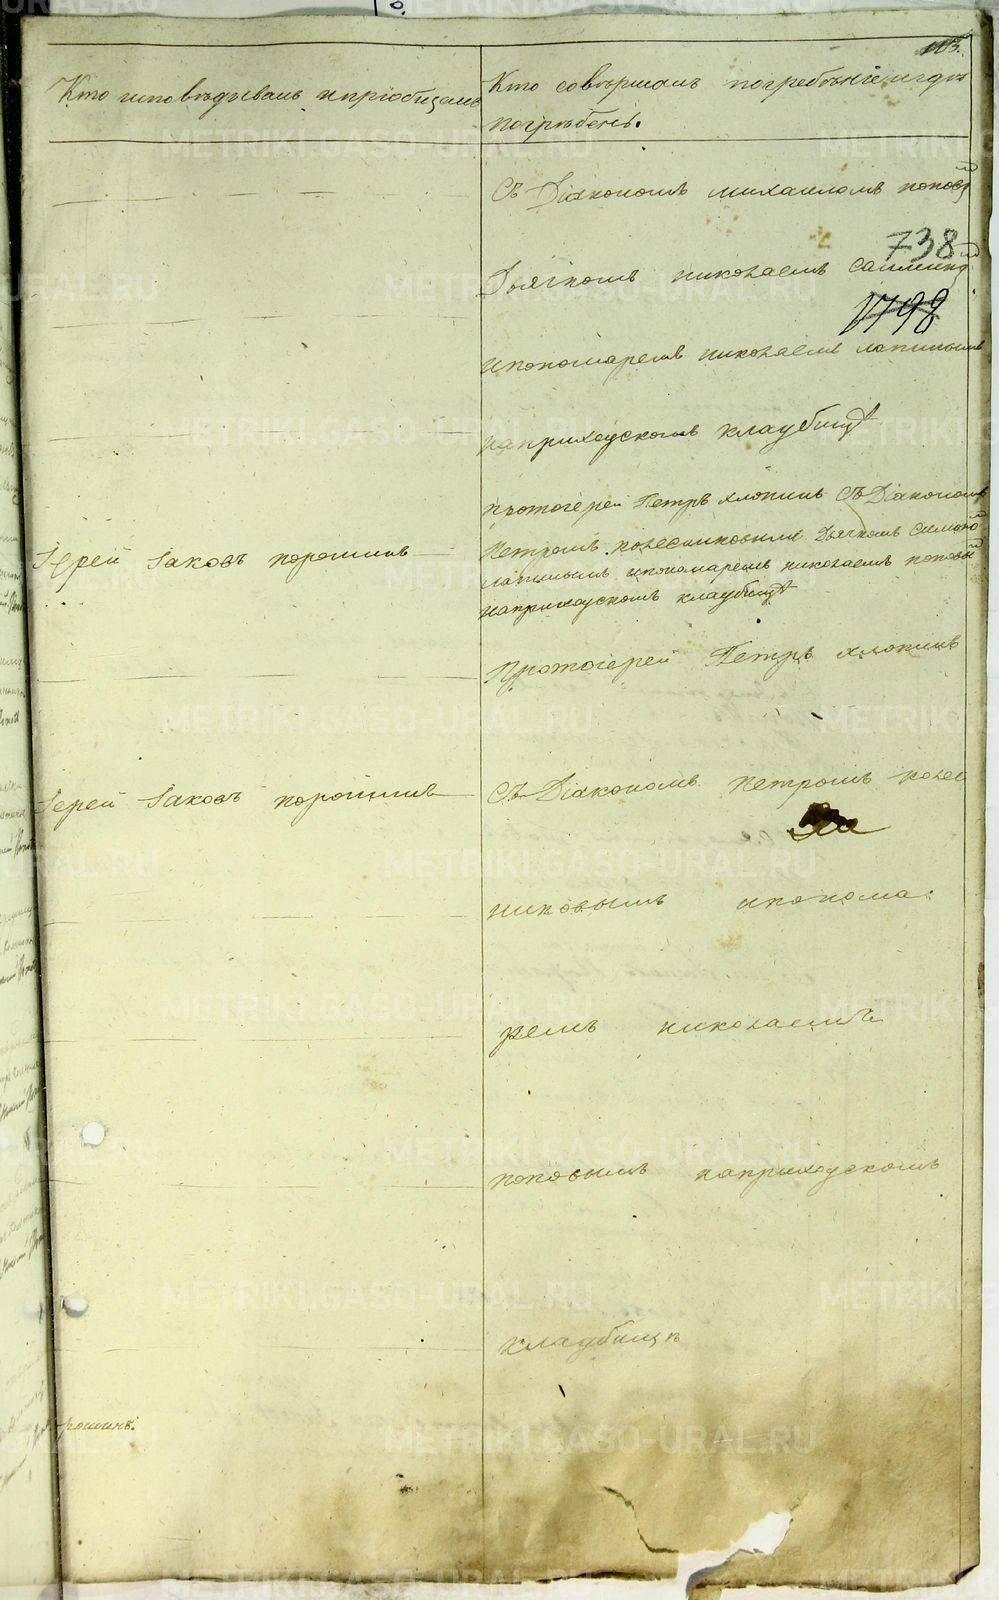 103.
Кто исповѣдывалъ и пріобщалъ
Кто совершалъ погребеніе и гдѣ
погребенъ.
Съ Діакономъ Михаиломъ Поповы
738
Дьячкомъ Николаемъ
1798
и пономаремъ Николаемъ Лапинымъ
на приходскомъ кладбищѣ
Протоіерей Петръ Хлопинъ Съ Діакономъ
Іерей Іаковъ Порошинъ
Петромъ Колесниковымъ Дьячкомъ
Лапинымъ и пономаремъ Николаемъ Поповы
на приходскомъ кладбищѣ
Протоіерей Петръ Хлопинъ
Іерей Іаковъ Порошинъ
Съ Діакономъ Петромъ Колес
никовымъ и понома:
ремъ Николаемъ
Поповымъ на приходскомъ
кладбищѣ
рошинъ.
METRIKI.GASO-URAL.RU